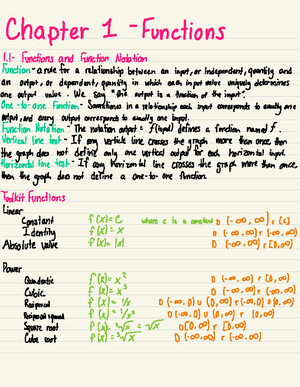 Chapter 1 - Functions
1.1- Functions and Function Notation
Function - a rule for a relationship between an input, or independent, quantity and
an output, or dependent, quantity in which each input value uniquely determines
one output value. We say "this output is a function of the input".
One-to-one Function - Sometimes in a relationship each input corresponds to exactly one
output, and every output corresponds to exactly one input.
Function Notation - The notation output = f(input) defines a function named f.
Vertical line test - If any vertical line crosses the graph more than once then
the graph does not define only one vertical output for each horizontal input.
Horizontal line test - If any horizontal line crosses the graph more than once,
then the graph does not define a one-to-one function.
Toolkit Functions
Linear
Constant f(x)=C where c is a constant D (-∞,∞) r [c]
Identity f(x)=x D (-∞,∞) r (-∞,∞)
Absolute value f(x)=|x| D (-∞,∞) r [0,∞)
Power
Quadratic f(x)=x² D (-∞,∞) r [0,∞)
Cubic f(x)=x³ D (-∞,∞) r (-∞,∞)
Reciprocal f(x)=1/x D (-∞,0) U (0,∞) r (-∞,0) U (0,∞)
Reciprocal squared f(x)=1/x² D (-∞,0) U (0,∞) r (0,∞)
Square root f(x)=²√x = √x D [0,∞) r [0,∞)
Cube root f(x)=³√x D (-∞,∞) r (-∞,∞)